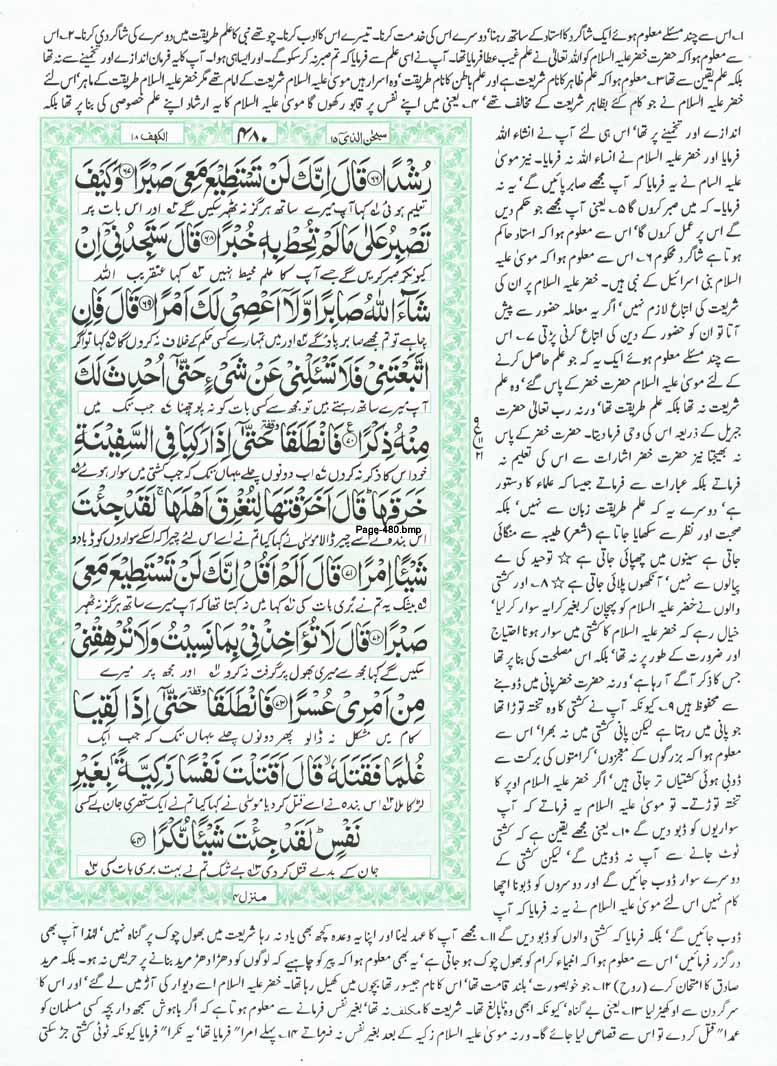 ۱؎ اس سے چند مسئلے معلوم ہوئے ایک شاگرد کا استاد کے ساتھ رہنا، دوسرے اس کی خدمت کرنا۔ تیسرے اس کا ادب کرنا۔ چوتھے نبی کا علم طریقت میں دوسرے کی شاگردی کرنا۔ ۲؎ اس
سے معلوم ہوا کہ حضرت خضر علیہ السلام کو اللہ تعالیٰ نے علم غیب عطا فرمایا تھا۔ آپ نے اسی علم سے فرمایا کہ تم صبر نہ کر سکو گے۔ اور ایسا ہی ہوا۔ آپ کا یہ فرمان اندازے اور تخمینے سے نہ تھا
بلکہ علم یقین سے تھا ۳؎ معلوم ہوا کہ علم ظاہر کا نام شریعت ہے اور علم باطن کا نام طریقت، وہ اسرار ہیں موسیٰ علیہ السلام شریعت کے امام تھے مگر خضر علیہ السلام طریقت کے ماہر، اس لئے
خضر علیہ السلام نے جو کام کئے بظاہر شریعت کے مخالف تھے، ۴؎ یعنی میں اپنے نفس پر قابو رکھوں گا موسیٰ علیہ السلام کا یہ ارشاد اپنے علم خصوصی کی بنا پر تھا بلکہ
اندازے اور تخمینے پر تھا، اس ہی لئے آپ نے انشاء اللہ
فرمایا اور خضر علیہ السلام نے انساء اللہ نہ فرمایا۔ نیز موسیٰ
علیہ السلام نے یہ فرمایا کہ آپ مجھے صابر پائیں گے، یہ نہ
فرمایا۔ کہ میں صبر کروں گا ۵؎ یعنی آپ مجھے جو حکم دیں
گے اس پر عمل کروں گا، اس سے معلوم ہوا کہ استاد حاکم
ہوتا ہے شاگرد محکوم ۶؎ اس سے معلوم ہوا کہ موسیٰ علیہ
السلام بنی اسرائیل کے نبی ہیں۔ خضر علیہ السلام پر ان کی
شریعت کی اتباع لازم نہیں، اگر یہ معاملہ حضور سے پیش
آتا تو ان کو حضور کے دین کی اتباع کرنی پڑتی ۷؎ اس
سے چند مسئلے معلوم ہوئے ایک یہ کہ جو علم حاصل کرنے
کے لئے موسیٰ علیہ السلام حضرت خضر کے پاس گئے، وہ علم
شریعت نہ تھا بلکہ علم طریقت تھا، ورنہ رب تعالیٰ حضرت
جبریل کے ذریعہ اس کی وحی فرما دیتا۔ حضرت خضر کے پاس
نہ بھیجتا نیز حضرت خضر اشارات سے اس کی تعلیم نہ
فرماتے بلکہ عبارات سے فرماتے جیسا کہ علماء کا دستور
ہے، دوسرے یہ کہ علم طریقت زبان سے نہیں، بلکہ
صحبت اور نظر سے سکھایا جاتا ہے (شعر) طیبہ سے منگائی
جاتی ہے سینوں میں چھپائی جاتی ہے ☆ توحید کی مے
پیالوں سے نہیں، آنکھوں پلائی جاتی ہے ☆ ۸؎ اور کشتی
والوں نے خضر علیہ السلام کو پہچان کر بغیر کرایہ سوار کر لیا،
خیال رہے کہ خضر علیہ السلام کا کشتی میں سوار ہونا احتیاج
اور ضرورت کے طور پر نہ تھا، بلکہ اس مصلحت کی بنا پر تھا
جس کا ذکر آگے آ رہا ہے، ورنہ حضرت خضر پانی میں ڈوبنے
سے محفوظ ہیں ۹؎ کیونکہ آپ نے کشتی کا وہ تختہ توڑا تھا
جو پانی میں رہتا ہے لیکن پانی کشتی میں نہ بھرا، اس سے
معلوم ہوا کہ بزرگوں کے معجزوں، کرامتوں کی برکت سے
ڈوبی ہوئی کشتیاں تر جاتی ہیں، اگر خضر علیہ السلام اوپر کا
تختہ توڑتے۔ تو موسیٰ علیہ السلام یہ فرماتے کہ آپ
سواریوں کو ڈبو دیں گے ۱۰؎ یعنی مجھے یقین ہے کہ کشتی
ٹوٹ جانے سے آپ نہ ڈوبیں گے، لیکن کشتی کے
دوسرے سوار ڈوب جائیں گے اور دوسروں کو ڈبونا اچھا
کام نہیں اس لئے موسیٰ علیہ السلام نے یہ نہ فرمایا کہ آپ
سبحٰن الذی ۱۵
۴۸۰
الکھف ۱۸
رُشْدًا ﴿۶۶﴾ قَالَ اِنَّكَ لَنْ تَسْتَطِيْعَ مَعِيَ صَبْرًا ﴿۶۷﴾ وَكَيْفَ
تعلیم ہوئی ۱؎ کہا آپ میرے ساتھ ہرگز نہ ٹھہر سکیں گے ۲؎ اور اس بات پر
تَصْبِرُ عَلٰى مَا لَمْ تُحِطْ بِهٖ خُبْرًا ﴿۶۸﴾ قَالَ سَتَجِدُنِيْۤ اِنْ
کیونکر صبر کریں گے جسے آپ کا علم محیط نہیں ۳؎ کہا عنقریب اللہ
شَآءَ اللّٰهُ صَابِرًا وَّلَاۤ اَعْصِيْ لَكَ اَمْرًا ﴿۶۹﴾ قَالَ فَاِنِ
چاہے تو تم مجھے صابر پاؤ گے ۴؎ اور میں تمہارے کسی حکم کے خلاف نہ کروں گا ۵؎ کہا تو اگر
اتَّبَعْتَنِيْ فَلَا تَسْـَٔلْنِيْ عَنْ شَيْءٍ حَتّٰۤى اُحْدِثَ لَكَ
آپ میرے ساتھ رہتے ہیں تو مجھ سے کسی بات کو نہ پوچھنا ۶؎ جب تک میں
مِنْهُ ذِكْرًا ﴿۷۰﴾ فَانْطَلَقَا ۥ حَتّٰۤى اِذَا رَكِبَا فِي السَّفِيْنَةِ
خود اس کا ذکر نہ کروں ۷؎ اب دونوں چلے یہاں تک کہ جب کشتی میں سوار ہوئے ۸؎
خَرَقَهَا ؕ قَالَ اَخَرَقْتَهَا لِتُغْرِقَ اَهْلَهَا ۚ لَقَدْ جِئْتَ
Page-480.bmp
اس بندہ نے اسے چیر ڈالا موسیٰ نے کہا کیا تم نے اسے اس لئے چیرا کہ اسکے سواروں کو ڈبا دو
شَيْـًٔا اِمْرًا ﴿۷۱﴾ قَالَ اَلَمْ اَقُلْ اِنَّكَ لَنْ تَسْتَطِيْعَ مَعِيَ
۹؎ بیشک یہ تم نے بری بات کی ۱۰؎ کہا میں نہ کہتا تھا کہ آپ میرے ساتھ ہرگز نہ ٹھہر
صَبْرًا ﴿۷۲﴾ قَالَ لَا تُؤَاخِذْنِيْ بِمَا نَسِيْتُ وَلَا تُرْهِقْنِيْ
سکیں گے کہا مجھ سے میری بھول پر گرفت نہ کرو ۱۱؎ اور مجھ پر میرے
مِنْ اَمْرِيْ عُسْرًا ﴿۷۳﴾ فَانْطَلَقَا ۥ حَتّٰۤى اِذَا لَقِيَا
کام میں مشکل نہ ڈالو پھر دونوں چلے یہاں تک کہ جب ایک
غُلٰمًا فَقَتَلَهٗ ۙ قَالَ اَقَتَلْتَ نَفْسًا زَكِيَّةًۢ بِغَيْرِ
لڑکا ملا ۱۲؎ اس بندہ نے اسے قتل کر دیا موسیٰ نے کہا کیا تم نے ایک ستھری جان بے کسی
نَفْسٍ ؕ لَقَدْ جِئْتَ شَيْـًٔا نُّكْرًا ﴿۷۴﴾
جان کے بدلے قتل کر دی ۱۳؎ بے شک تم نے بہت بری بات کی ۱۴؎
منزل ۴
ڈوب جائیں گے، بلکہ فرمایا کہ کشتی والوں کو ڈبو دیں گے ۱۱؎ مجھے آپ کا عہد لینا اور اپنا یہ وعدہ کچھ بھی یاد نہ رہا شریعت میں بھول چوک پر گناہ نہیں، لہٰذا آپ بھی
درگزر فرمائیں، اس سے معلوم ہوا کہ انبیاء کرام کو بھول چوک ہو جاتی ہے، یہ بھی معلوم ہوا کہ پیر کو چاہیے کہ لوگوں کو دھڑا دھڑ مرید بنانے پر حریص نہ ہو۔ بلکہ مرید
صادق کا امتحان کرے (روح) ۱۲؎ جو خوبصورت، بلند قامت تھا، اس کا نام جیسور تھا بچوں میں کھیل رہا تھا۔ خضر علیہ السلام اسے دیوار کی آڑ میں لے گئے، اور اس کا
سر گردن سے اوکھیڑ لیا ۱۳؎ یعنی بے گناہ، کیونکہ ابھی وہ نابالغ تھا۔ شریعت کا مکلف نہ تھا، بغیر نفس فرمانے سے معلوم ہوتا ہے کہ اگر باہوش سمجھ دار بچہ کسی مسلمان کو
عمدا" قتل کر دے تو اس سے قصاص لیا جائے گا۔ ورنہ موسیٰ علیہ السلام زکیہ کے بعد بغیر نفس نہ فرماتے ۱۴؎ پہلے امرا" فرمایا تھا، یہ نکرا" فرمایا کیونکہ ٹوٹی کشتی جڑ سکتی